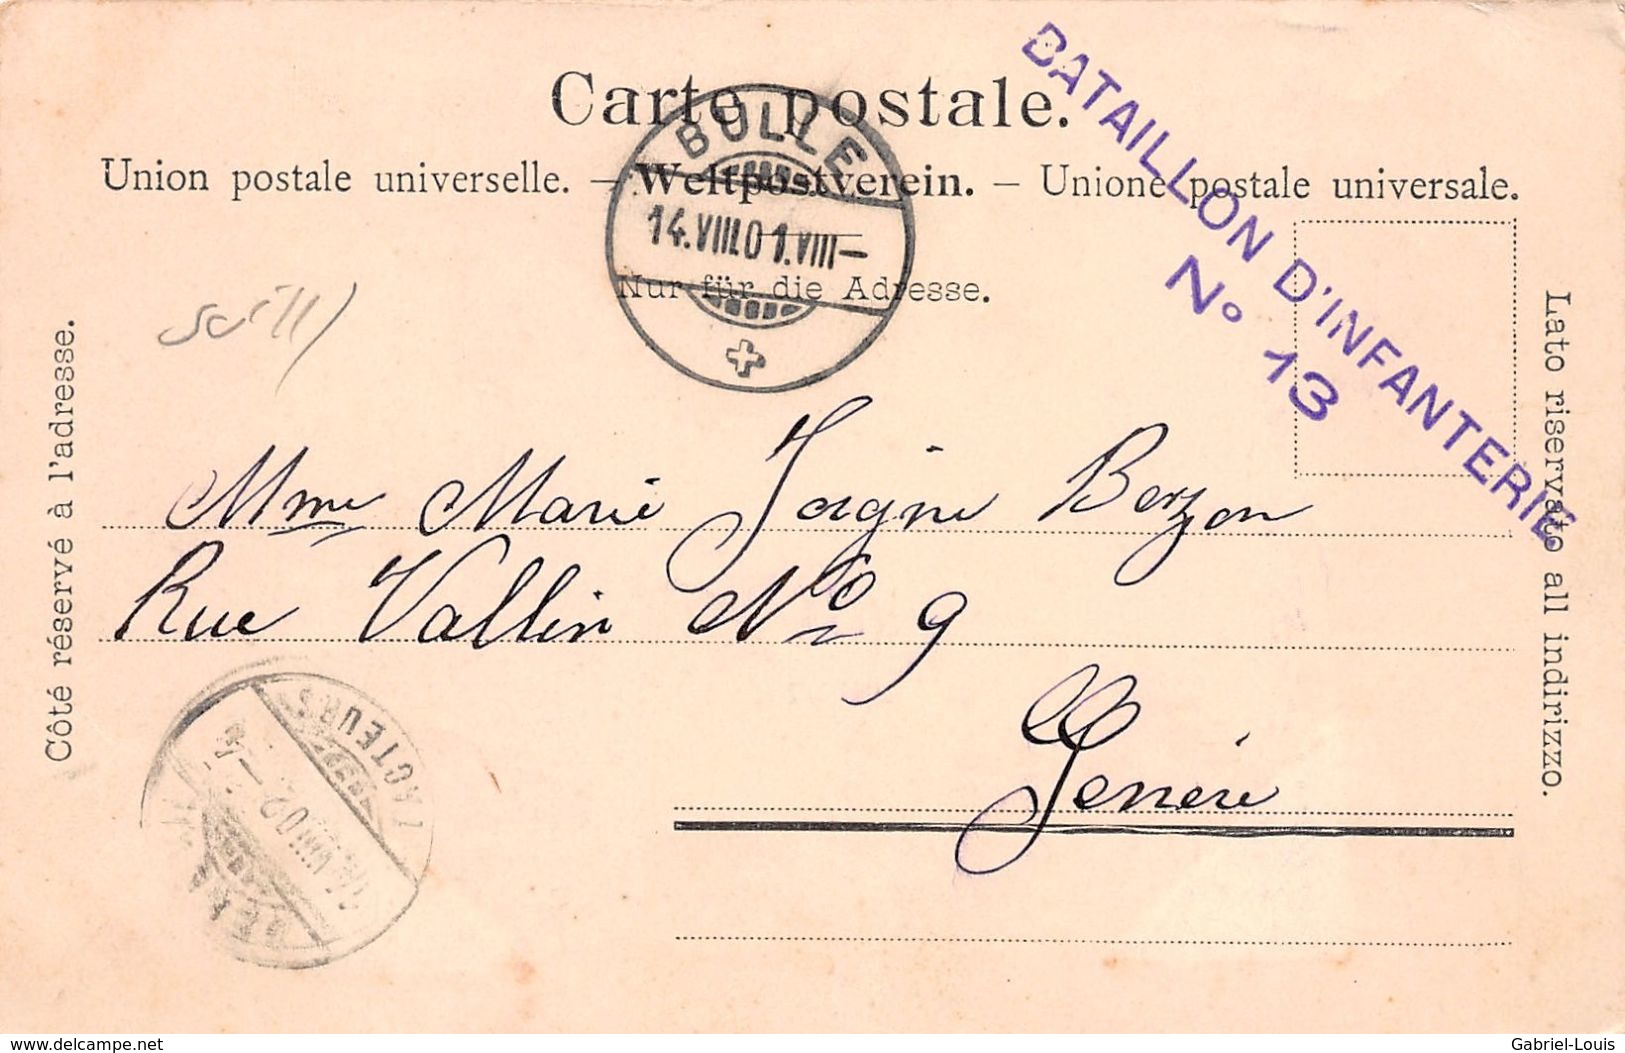 Carte postale.
Union postale universelle. – Weltpostverein. – Unione postale universale.
Nur für die Adresse.
BULLE
14.VIII.01.VIII–
BATAILLON D'INFANTERIE
No 13
Côté réservé à l'adresse.
Lato riservato all indirizzo.
Mme Marie Berzon
Rue Vallin No 9
Genève
FACTEURS
14.VIII.02
delcampe.net
Gabriel-Louis